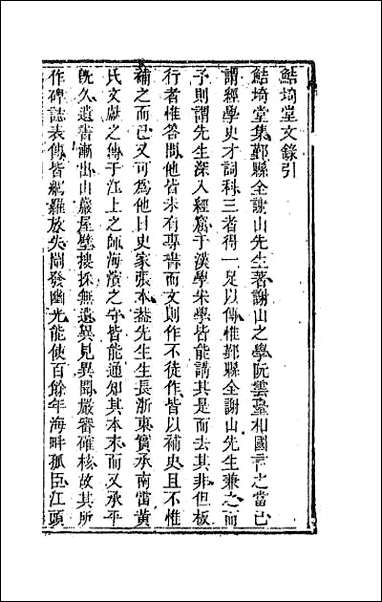 鮚埼堂文錄引
鮚埼堂集鄞縣全謝山先生著謝山之學阮雲臺相國言之當已
謂經學史才詞科三者得一足以傳惟鄞縣全謝山先生兼之而
予則謂先生深入經窟于漢學宋學皆能講其是而去其非但板
行者惟答問他皆未有專書而文則作不徒作皆以補史且不惟
補之而已又可為他日史家張本葢先生生長浙東實承南雷黃
氏文獻之傳于江上之師海濱之守皆能通知其本末而又承平
旣久遺書漸出山巖屋壁搜採無遺異見異聞嚴審確核故其所
作碑誌表傳皆網羅放失闡發幽光能使百餘年海畔孤臣江頭